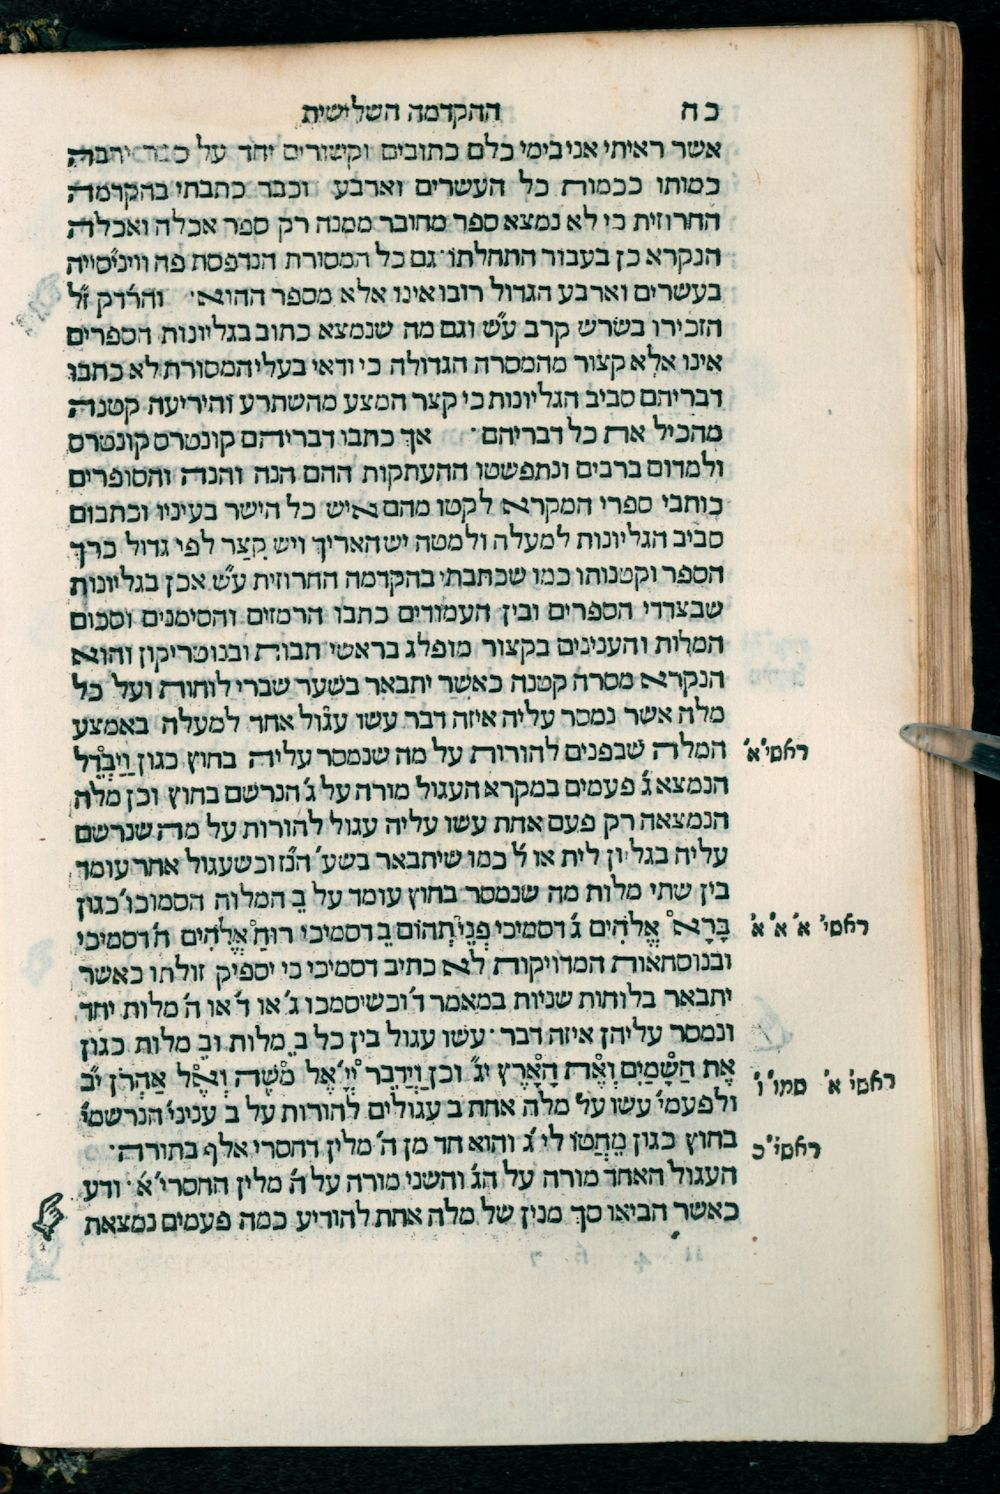 כח ההקדמה השלישית
אשר ראיתי אני בימי כלם כתובים וקשורים יחד על ספר ירבה
כמותו ככמות כל העשרים וארבע וכבר כתבתי בהקדמה
החרוזית כי לא נמצא ספר מחובר ממנה רק ספר אכלה ואכלה
הנקרא כן בעבור התחלתו גם כל המסורת הנדפסת פה וויניסייה
בעשרים וארבע הגדול רובו אינו אלא מספר ההוא׳ והר״דק ז״ל
הזכירו בשרש קרב ע״ש וגם מה שנמצא כתוב בגליונות הספרים
אינו אלא קצור מהמסרה הגדולה כי ודאי בעלי המסורת לא כתבו
דבריהם סביב הגליונות כי קצר המצע מהשתרע והיריעה קטנה
מהכיל את כל דבריהם׳ אך כתבו דבריהם קונטרס קונטרס
ולמדום ברבים ונתפשטו ההעתקות ההם הנה והנה והסופרים
כותבי ספרי המקרא לקטו מהם איש כל הישר בעיניו וכתבום
סביב הגליונות למעלה ולמטה יש האריך ויש קצר לפי גדול כרך
הספר וקטנותו כמו שכתבתי בהקדמה החרוזית ע״ש אכן בגליונות
שבצדדי הספרים ובין העמודים כתבו הרמזים והסימנים וסכום
המלות והענינים בקצור מופלג בראשי תבות ובנוטריקון והוא
הנקרא מסרה קטנה כאשר יתבאר בשער שברי לוחות ועל כל
מלה אשר נמסר עליה איזה דבר עשו עגול אחד למעלה באמצע
המלה שבפנים להורות על מה שנמסר עליה בחוץ כגון וַיַּבְדֵּל
ראשי׳ א׳
הנמצא ג׳ פעמים במקרא העגול מורה על ג׳ הנרשם בחוץ וכן מלה
הנמצאה רק פעם אחת עשו עליה עגול להורות על מה שנרשם
עליה בגליון לית או ל׳ כמו שיתבאר בשע׳ הנז׳ וכשעגול אחד עומד
בין שתי מלות מה שנמסר בחוץ עומד על ב׳ המלות הסמוכו׳ כגון
בָּרָא אֱלֹהִים ג׳ דסמיכי פְּנֵי תְהוֹם ב׳ דסמיכי רוּחַ אֱלֹהִים ה׳ דסמיכי
ראשי׳ א׳ א׳ א׳
ובנוסחאות המדויקות לא כתיב דסמיכי כי יספיק זולתו כאשר
יתבאר בלוחות שניות במאמר ד׳ וכשיסמכו ג׳ או ד׳ או ה׳ מלות יחד
ונמסר עליהן איזה דבר׳ עשו עגול בין כל ב׳ מלות וב׳ מלות כגון
אֶת הַשָּׁמַיִם וְאֶת הָאָרֶץ י״ג וכן וַיְדַבֵּר יְיָ׳ אֶל מֹשֶׁה וְאֶל אַהֲרֹן י״ב
ראשי׳ א׳ שמו׳ ו׳
ולפעמי׳ עשו על מלה אחת ב׳ עגולים להורות על ב׳ עניני׳ הנרשמי׳
בחוץ כגון מֵחֲטוֹ לי׳ ג׳ והוא חד מן ה׳ מלין דחסרי אלף בתורה׳
ראשי׳ כ׳
העגול האחד מורה על הג׳ והשני מורה על ה׳ מלין החסרי׳ א׳ ודע
כאשר הביאו סך מנין של מלה אחת להודיע כמה פעמים נמצאת